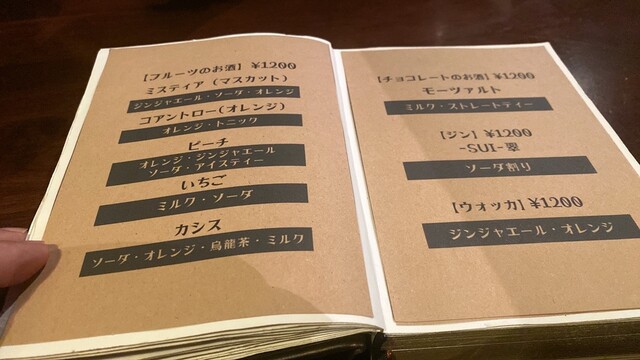 [フルーツのお酒] ¥1200
ミスティア (マスカット)
ジンジャエール・ソーダ・オレンジ
コアントロー(オレンジ)
オレンジ・トニック
ピーチ
オレンジ・ジンジャエール
ソーダ・アイスティー
いちご
ミルク・ソーダ
カシス
ソーダ・オレンジ・烏龍茶・ミルク
[チョコレートのお酒] ¥1200
モーツァルト
ミルク・ストレートティー
[ジン] ¥1200
-SUI-翠
ソーダ割り
[ウォッカ] ¥1200
ジンジャエール・オレンジ